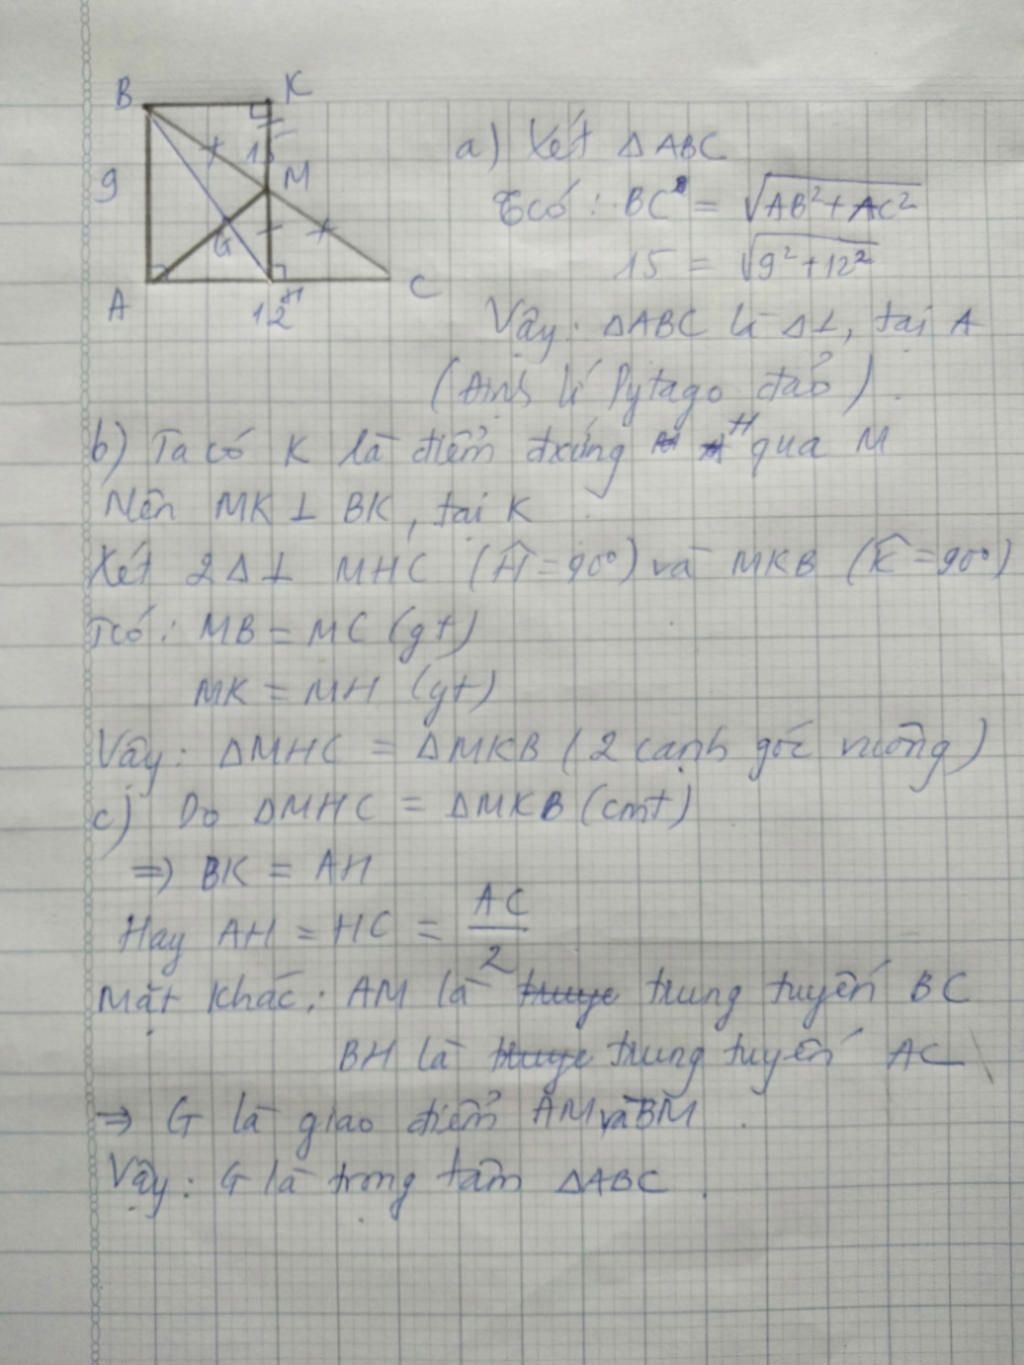 B
K
9
15
M
G
A
12
H
C
a) Xét ΔABC
Tcó: BC = √AB²+AC²
15 = √9²+12²
Vậy: ΔABC là Δ⊥, tại A
(Định lí Pytago đảo).
b) Ta có K là điểm đxứng H qua M
Nên MK ⊥ BK, tại K
Xét 2Δ⊥ MHC (Ĥ=90°) và MKB (K̂=90°)
Tcó: MB = MC (gt)
MK = MH (gt)
Vậy: ΔMHC = ΔMKB (2 cạnh góc vuông)
c) Do ΔMHC = ΔMKB (cmt)
⇒ BK = AH
Hay AH = HC = AC/2
Mặt khác: AM là trung tuyến BC
BH là trung tuyến AC
⇒ G là giao điểm AM và BM.
Vậy: G là trong tâm ΔABC.